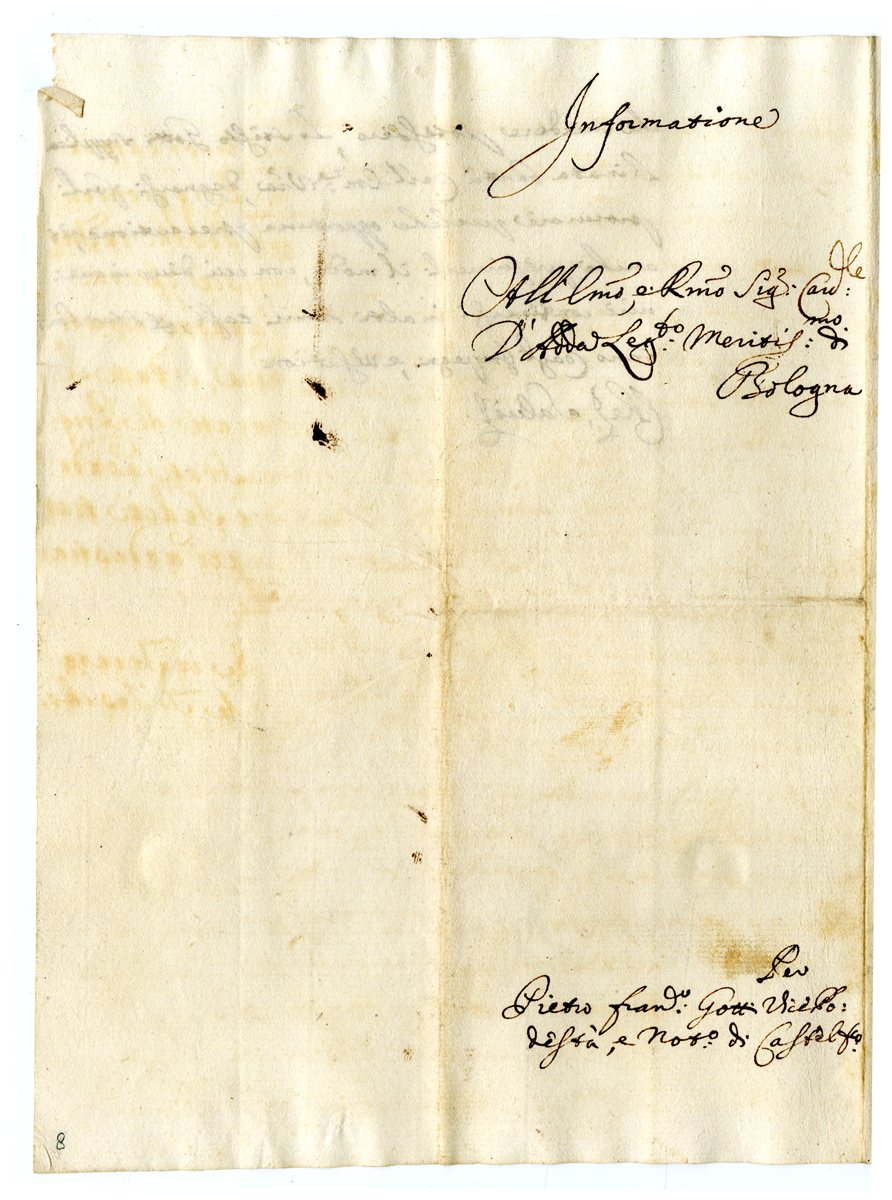 Informatione
All' Emo, e Rmo Sig.r Card:le
D'Adda Leg:to Meritis:mo di
Bologna
Per
Pietro Fran:co Gotti Vice Po:
destà, e Not:o di Castel fr:o
8